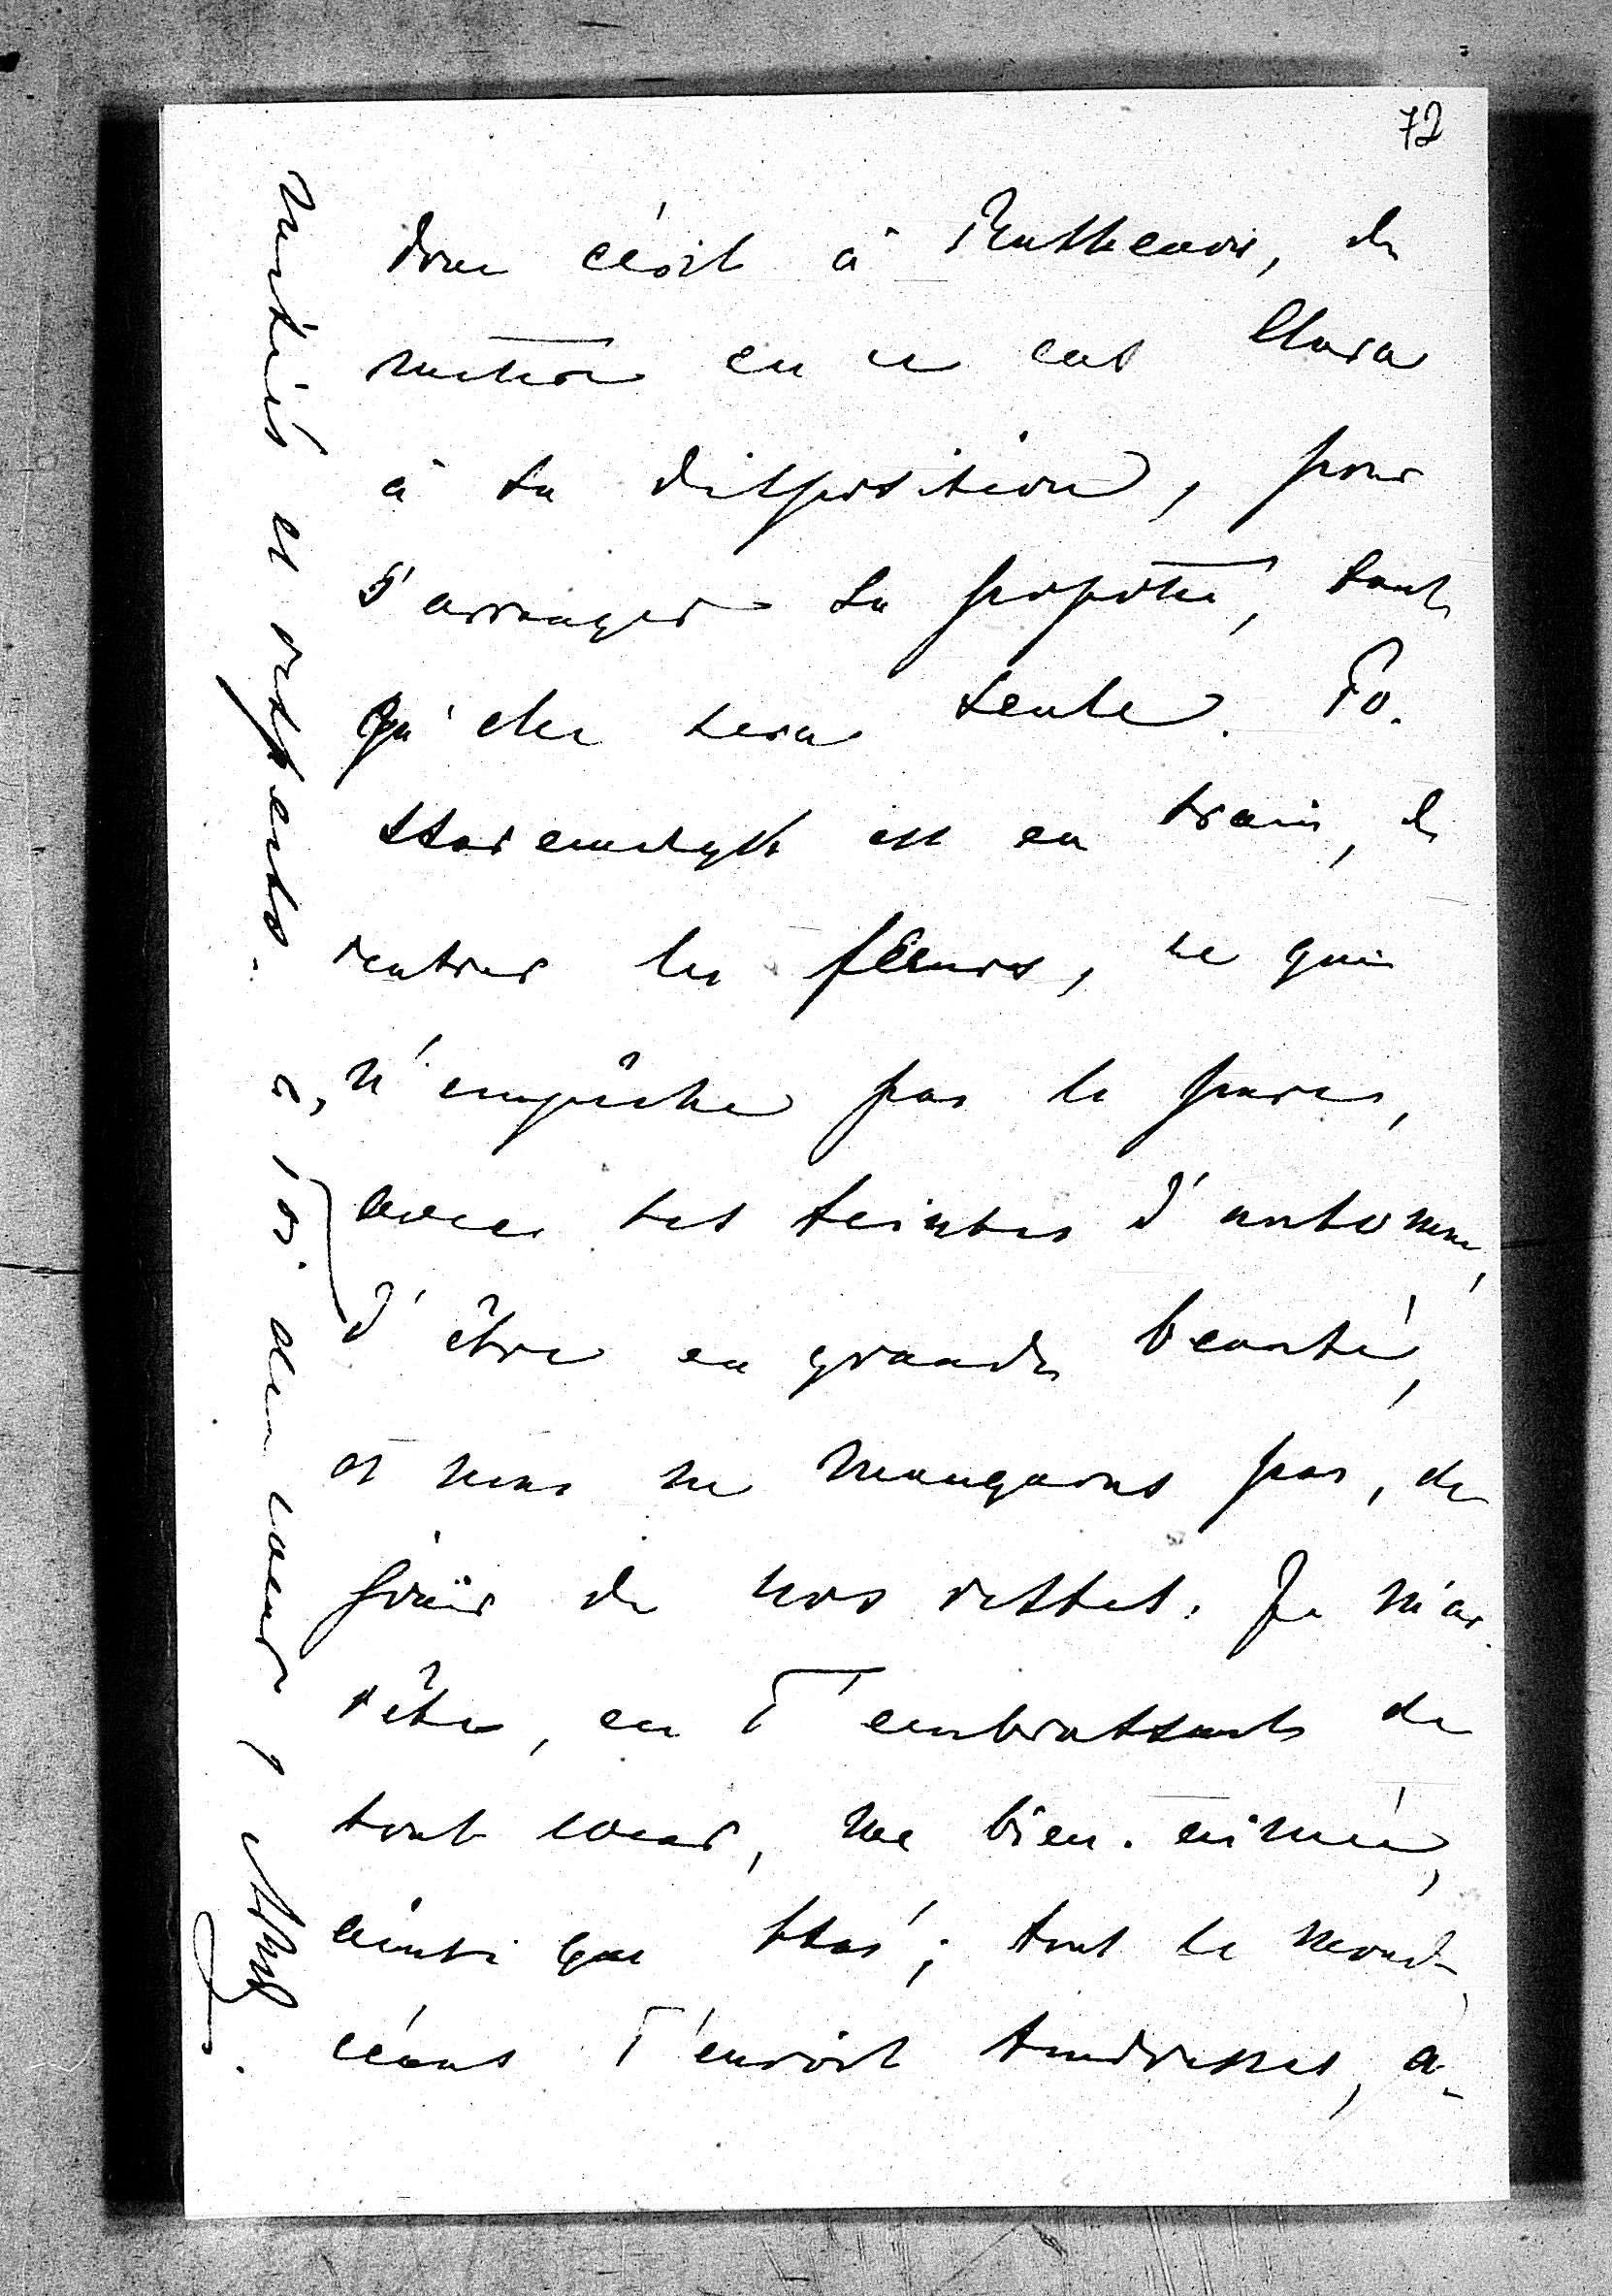 72
donc écrit à Ruthenois, de
mettre en ce cas Clara
à sa disposition, pour
s'arranger sa popotte, tant
qu'elle sera seule.
est en train, de
rentrer les fleurs, ce qui
n'empêche pas le parc,
avec ses teintes d'automne,
d'être en grande beauté,
et nous ne manquons pas, de
jouir de nos restes. Je m'ar-
rête, en T'embrassant de
tout coeur, ma bien-aimée,
ainsi que Stas; tout le monde
céans T'envoit tendresses, a-
mitiés et respects.
à Toi de coeur,